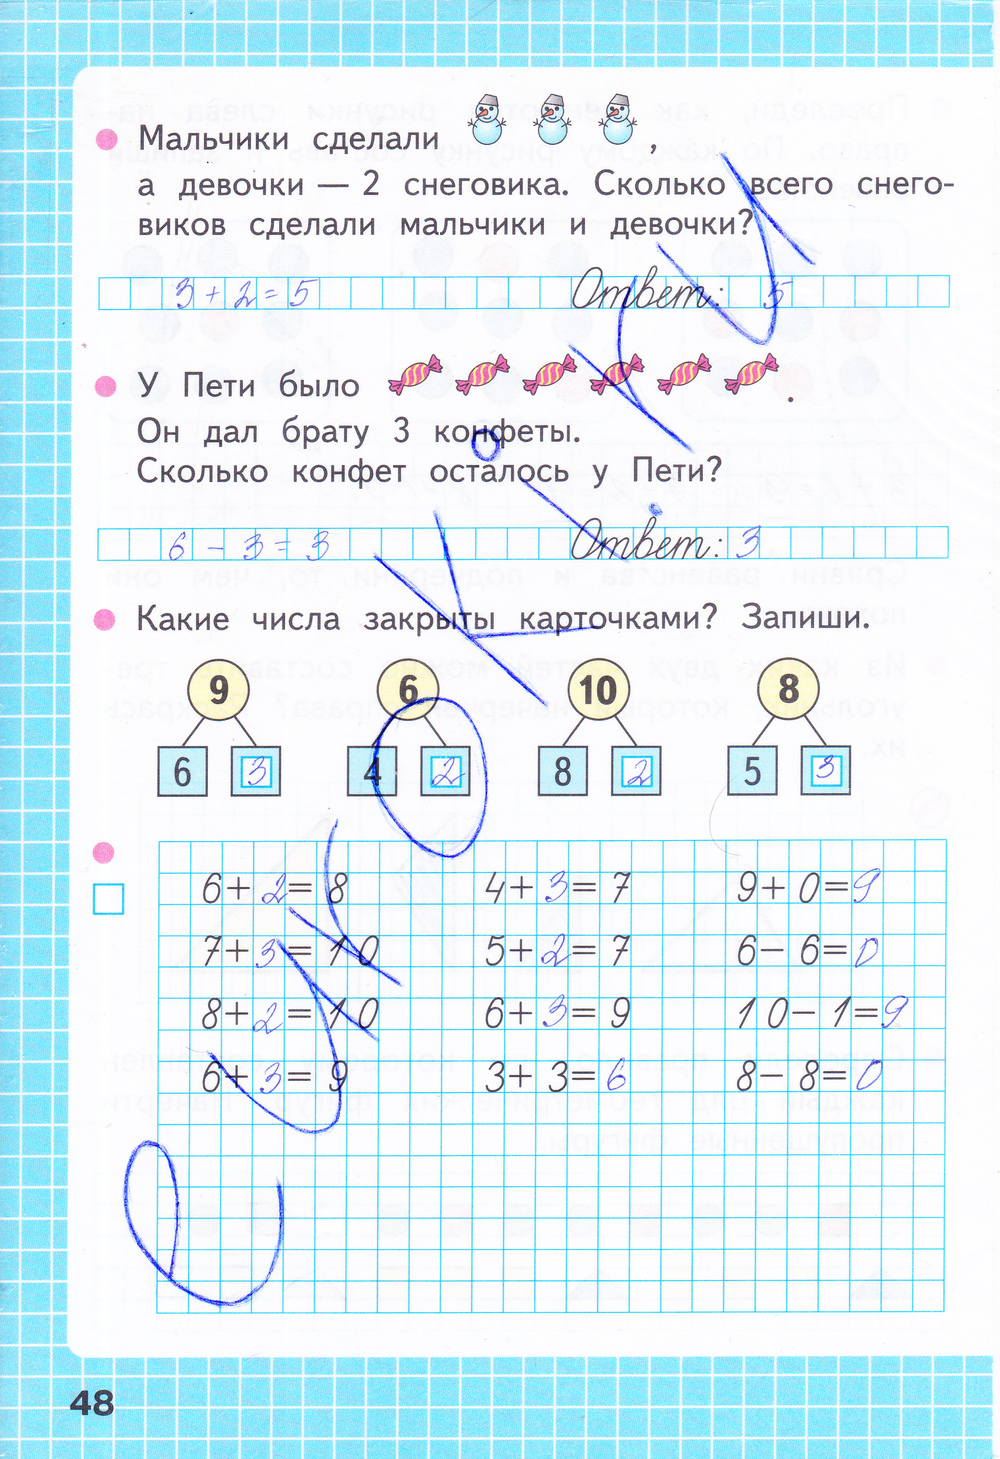 Мальчики сделали ,
а девочки — 2 снеговика. Сколько всего снего-
виков сделали мальчики и девочки?
3 + 2 = 5 Ответ: 5
У Пети было .
Он дал брату 3 конфеты.
Сколько конфет осталось у Пети?
6 - 3 = 3 Ответ: 3
Какие числа закрыты карточками? Запиши.
9 6 10 8
6 3 4 2 8 2 5 3
6+2=8 4+3=7 9+0=9
7+3=10 5+2=7 6-6=0
8+2=10 6+3=9 10-1=9
6+3=9 3+3=6 8-8=0
48